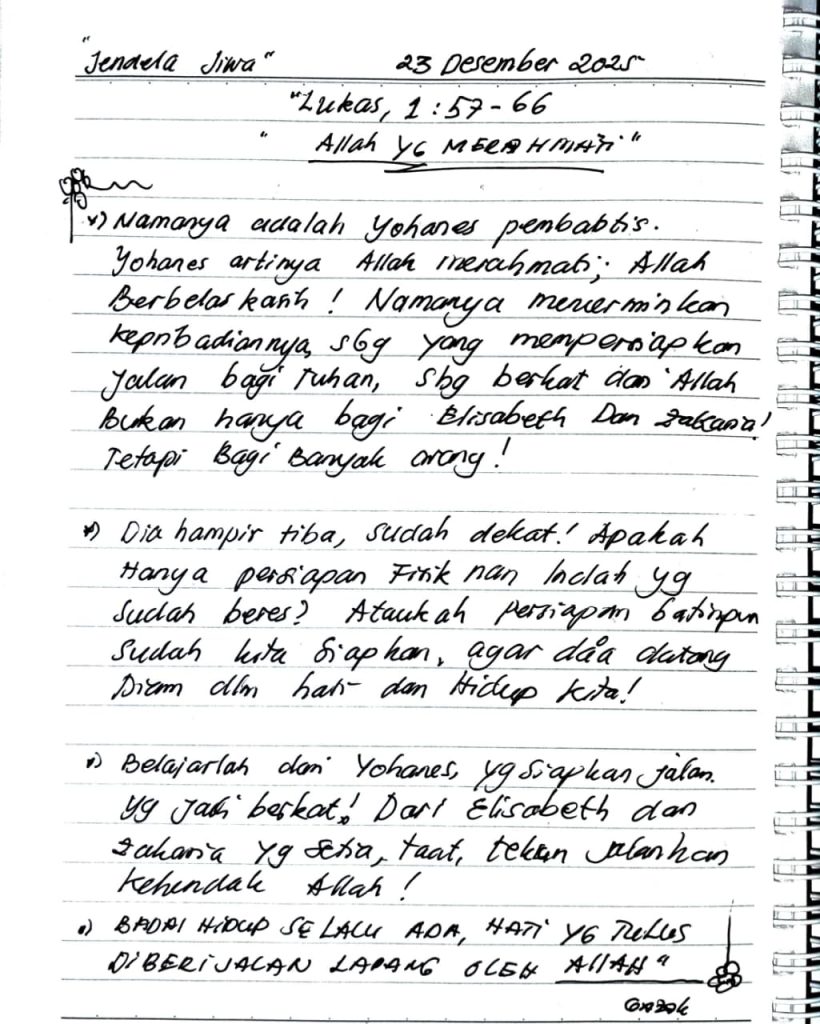 "Jendela Jiwa" 23 Desember 2025
"Lukas, 1:57-66
" Allah YG MERAHMATI"
Namanya adalah Yohanes pembabtis.
Yohanes artinya Allah merahmati; Allah
Berbelas kasih! Namanya mencerminkan
kepribadiannya, sbg yang mempersiapkan
jalan bagi Tuhan, sbg berkat dari Allah
Bukan hanya bagi Elisabeth Dan Zakaria!
Tetapi Bagi Banyak orang!
Dia hampir tiba, sudah dekat! Apakah
Hanya persiapan Fisik nan Indah yg
sudah beres? Ataukah persiapan batinpun
sudah kita siapkan, agar dia datang
Diam dlm hati dan Hidup kita!
Belajarlah dari Yohanes, yg siapkan jalan.
yg jadi berkat! Dari Elisabeth dan
Zakaria yg setia, taat, tekun jalankan
kehendak Allah!
BADAI HIDUP SELALU ADA, HATI YG TULUS
DIBERI JALAN LAPANG OLEH ALLAH"